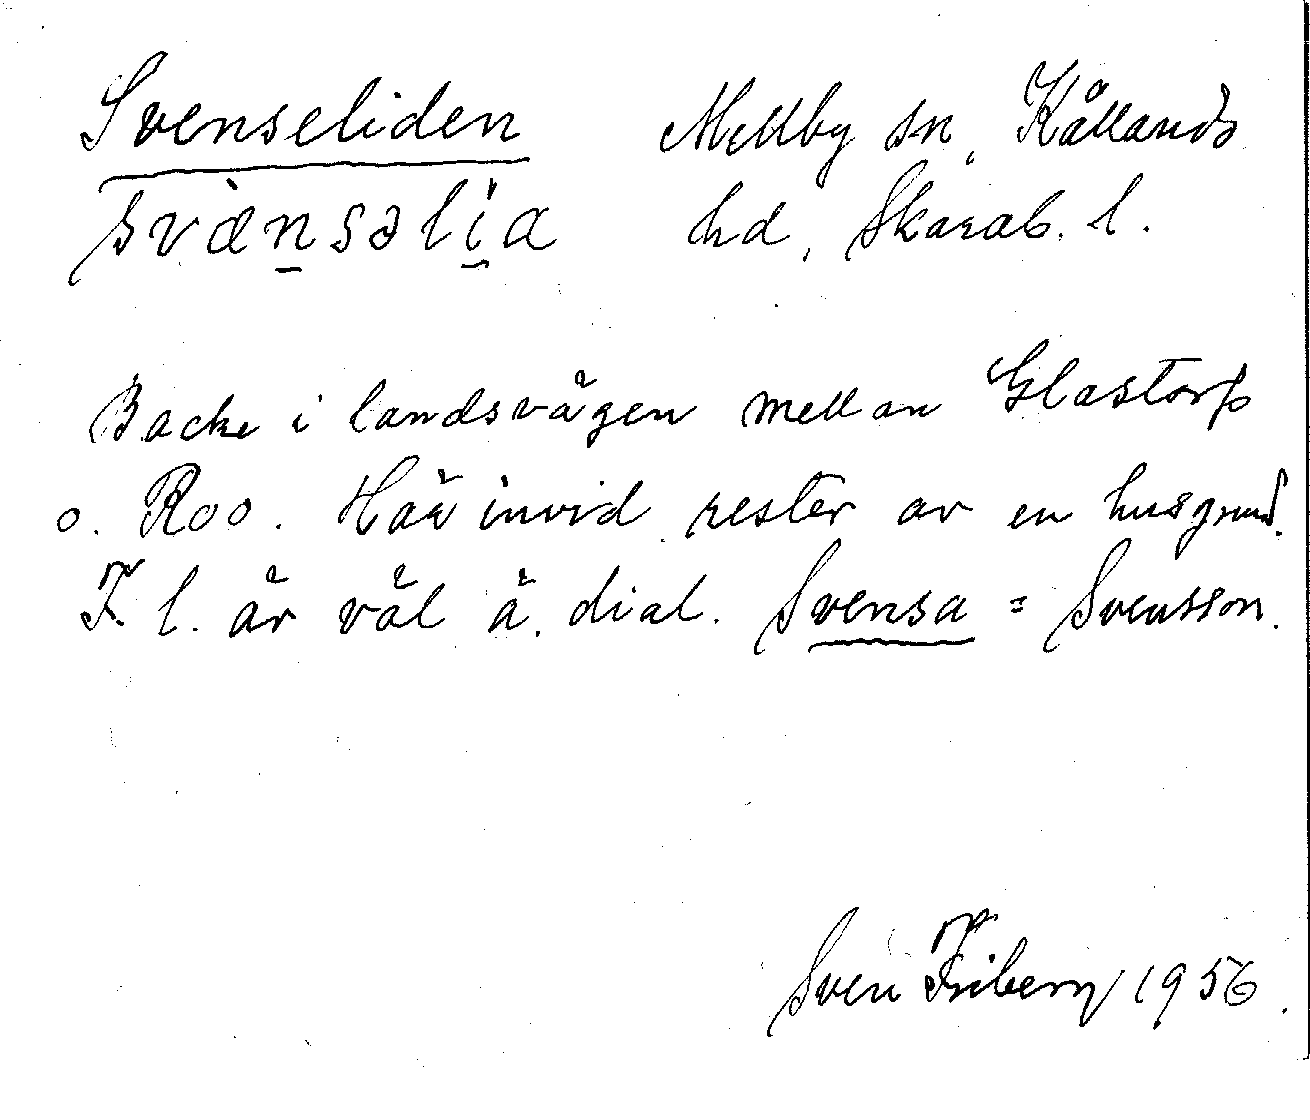 Svenseliden Mellby sn, Kållands
svæ̀nsəlìa hd, Skarab. l.
Backe i landsvägen mellan Glastorp
o. Roo. Här invid rester av en husgrund.
F l. är väl ä. dial. Svensa = Svensson.
Sven Friberg 1956.